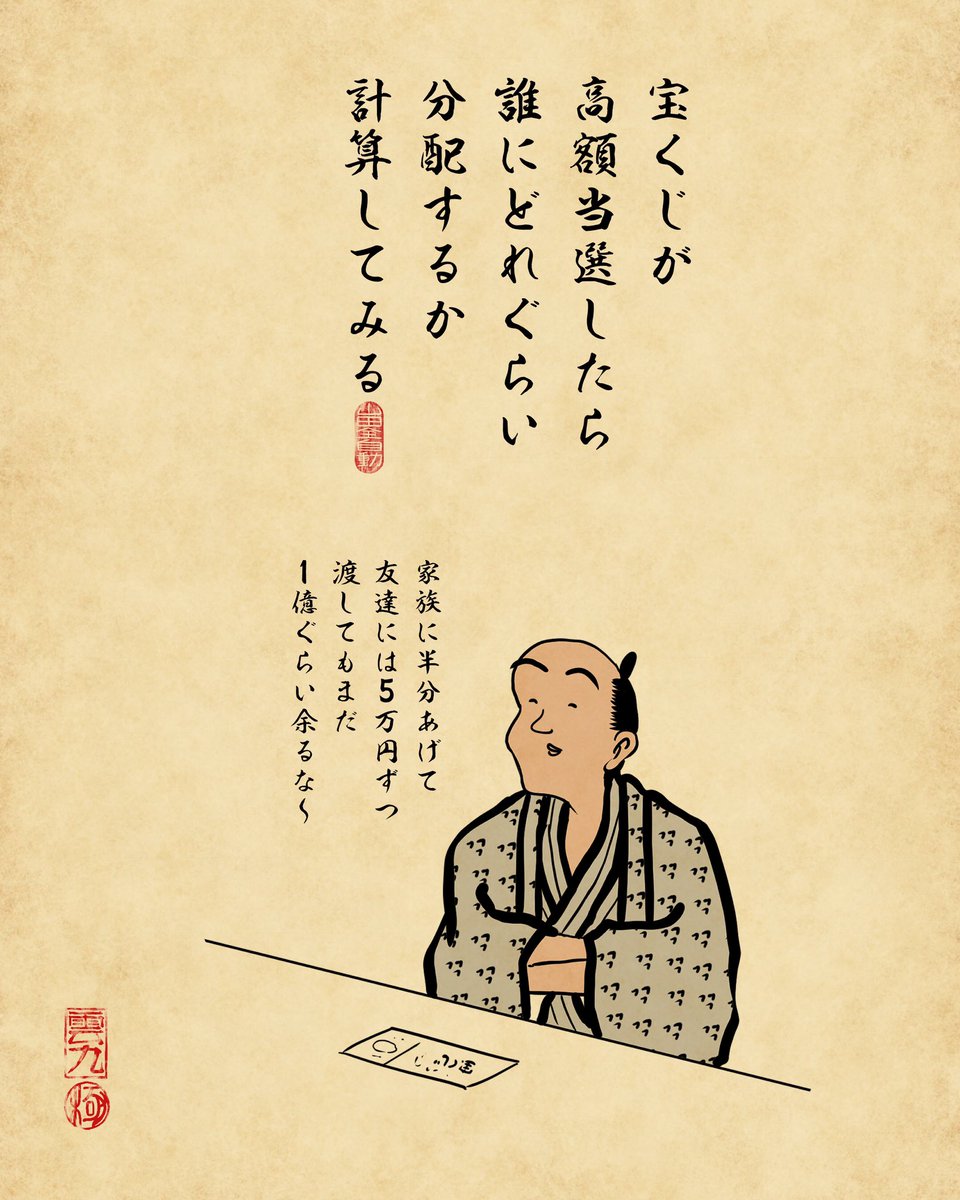 宝くじが
高額当選したら
誰にどれぐらい
分配するか
計算してみる
家族に半分あげて
友達には5万円ずつ
渡してもまだ
1億ぐらい余るな〜
宝くじ